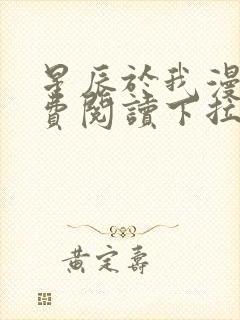 星辰於我漫
費閱讀下拉
黃定壽